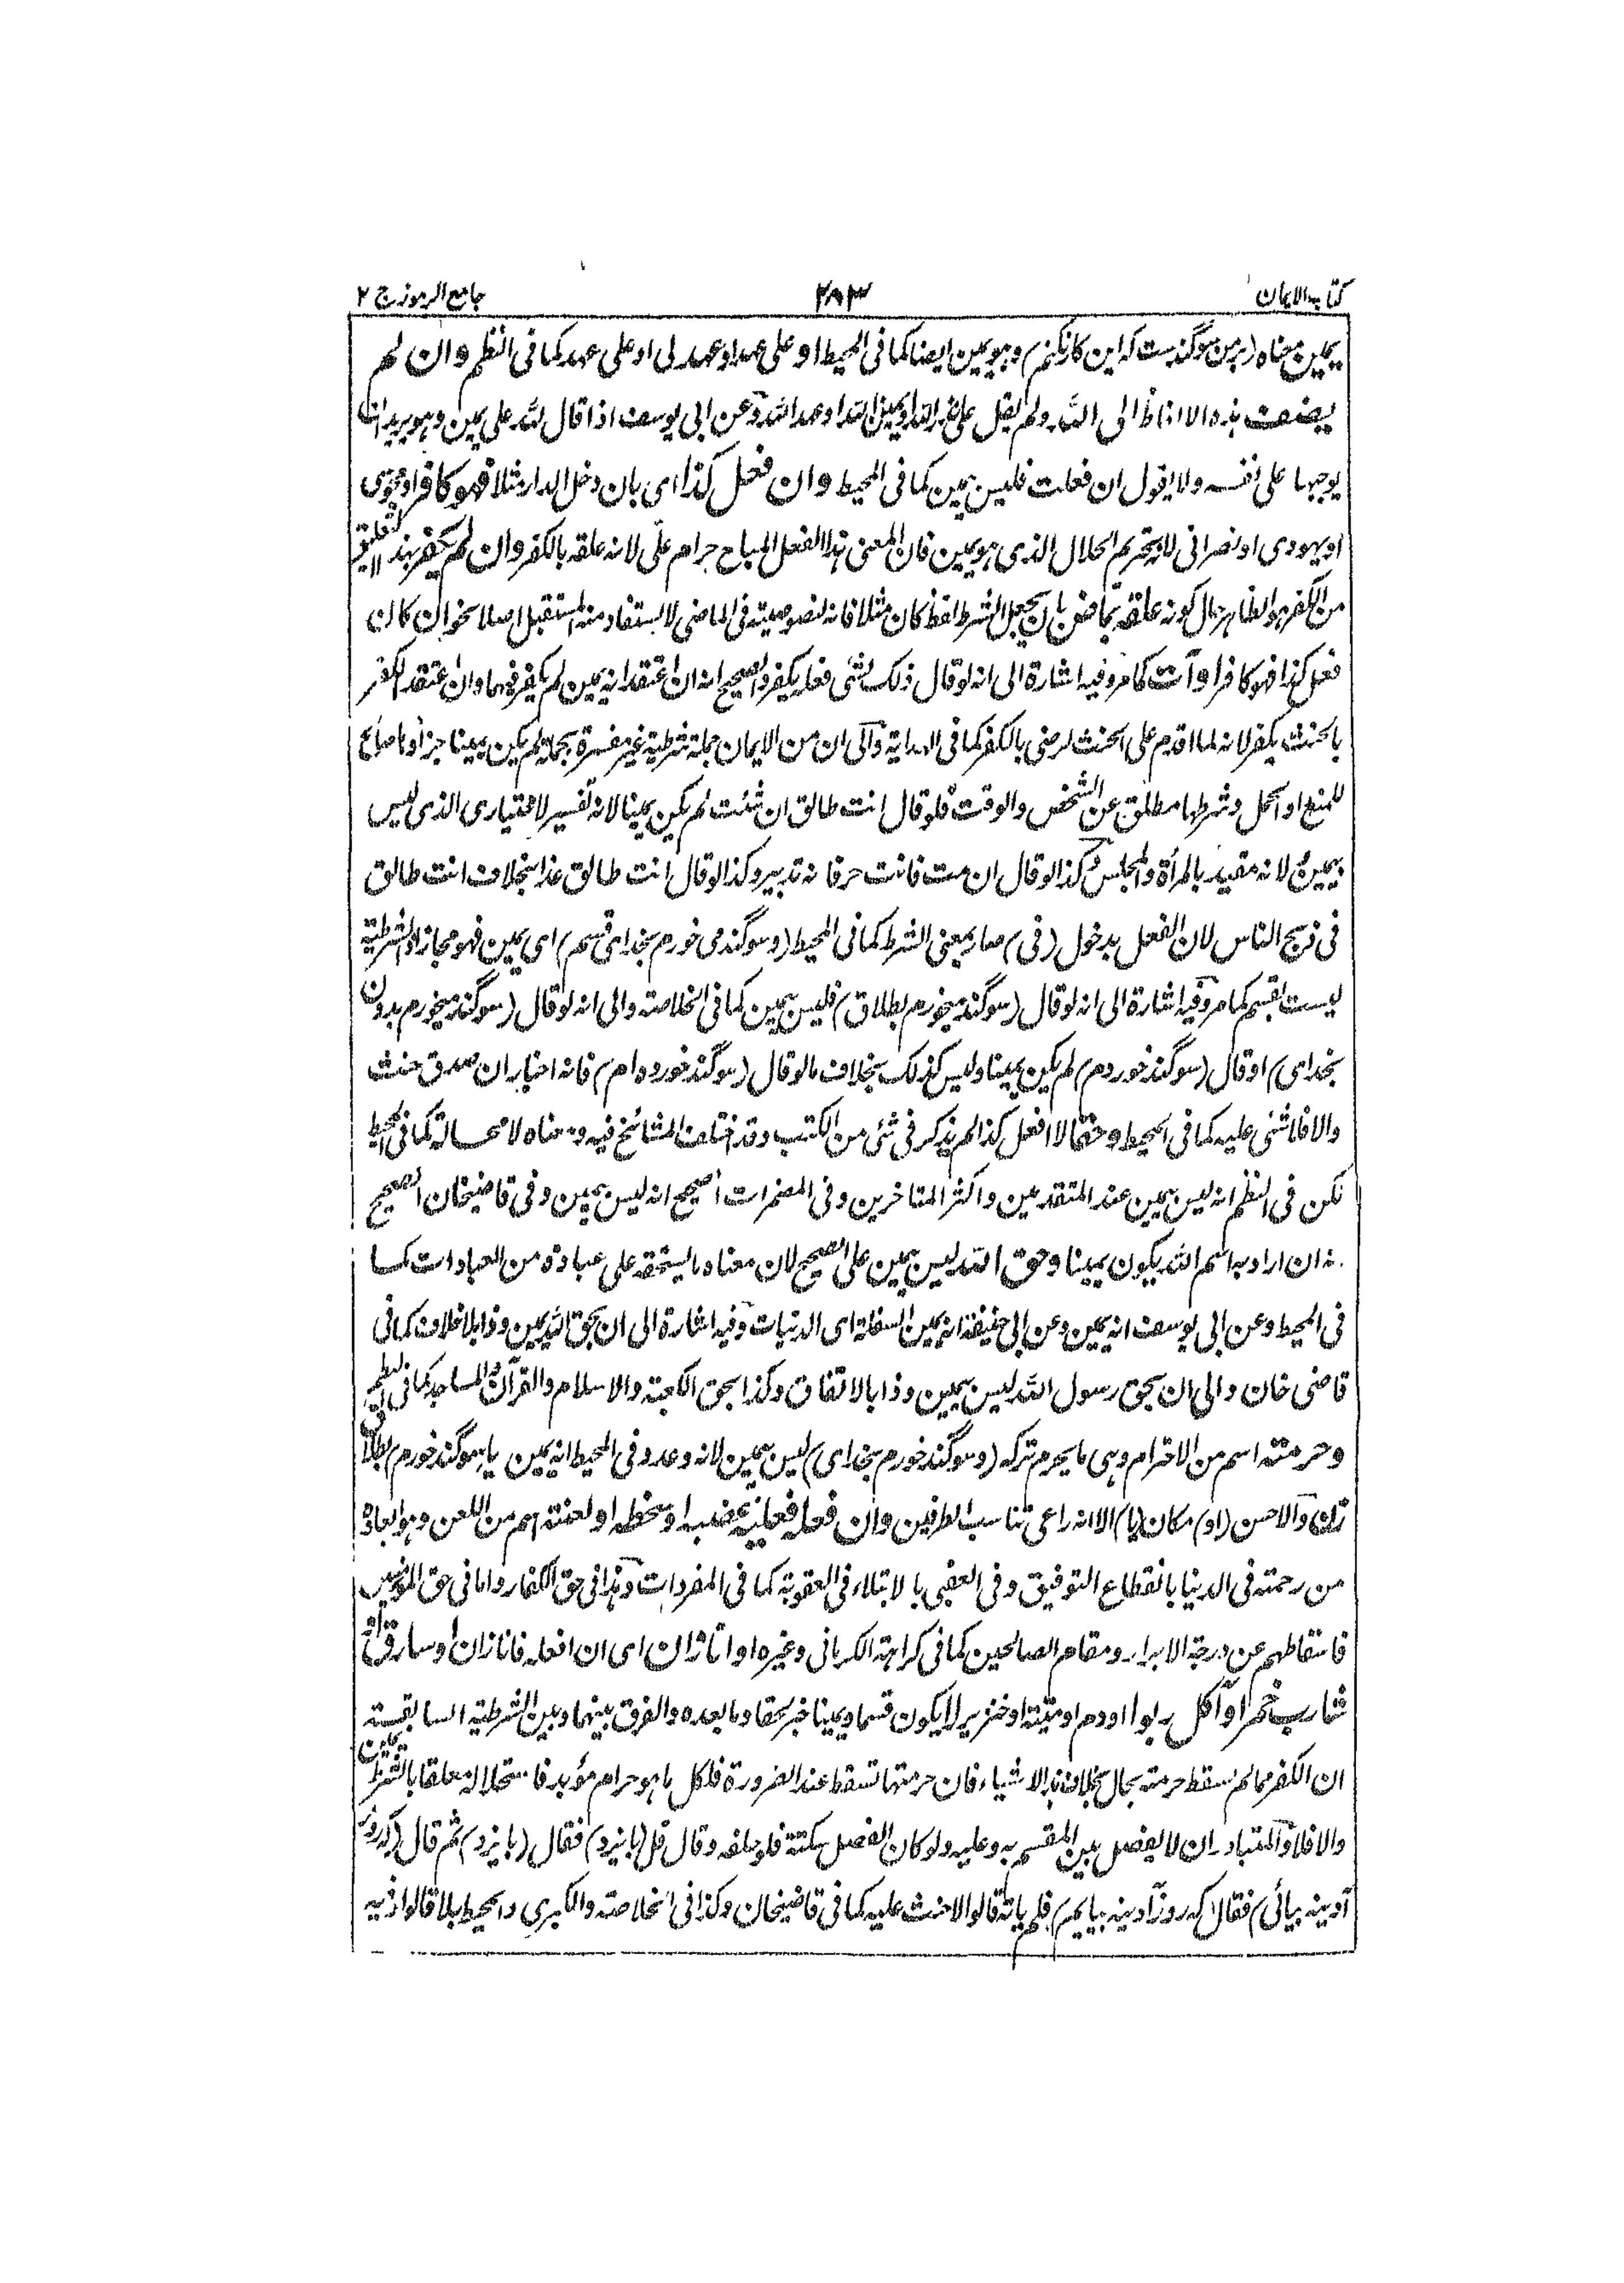 كتاب الايمان
٢٨٣
جامع الرموز ج ٢
يمين معناه (بر من سوگندست كه اين كار نكنم) وهو يمين ايضا كما فى المحيط او على عهد او عهد لى او على عهد كما فى النظم وان لم
يضف هذه الالفاظ الى الله ولم يقل على نذر الله او يمين الله او عهد الله وعن ابى يوسف اذا قال لله على يمين وهو يريد ان
يوجبها على نفسه ولا يقول ان فعلت فليس بيمين كما فى المحيط وان فعل كذا اى بان دخل الدار مثلا فهو كافر او مجوسى
او يهودى او نصرانى لانه تحريم الحلال الذى هو يمين فان المعنى هذا الفعل المباح حرام على لانه علقه بالكفر وان لم يكفر بهذا التعليق
من الكفر هو الظاهر حال كونه علقه بماض بان يجعل الشرط لفظ كان مثلا فانه لنصوصيته فى الماضى لا يستفاد منه المستقبل اصلا نحو ان كان
فعل كذا فهو كافر او آت كما مر وفيه اشارة الى انه لو قال ذلك لشئ فعله يكفر والصحيح انه ان اعتقد انه يمين لم يكفر فيهما وان اعتقد الكفر
بالحنث يكفر لانه لما اقدم على الحنث لرضى بالكفر كما فى الهداية والى ان من الايمان جملة شرطية غير مفسرة بجملة لم يكن يمينا جزاؤها صالح
للمنع او الحمل وشرطها مطلق عن الشخص والوقت فلو قال انت طالق ان شئت لم يكن يمينا لانه تفسير لاختيارى الذى ليس
بيمين لانه مقيد بالمرأة والمجلس وكذا لو قال ان مت فانت حر فانه تدبير وكذا لو قال انت طالق غدا بخلاف انت طالق
فى ذبح الناس لان الفعل بدخول (فى) صار بمعنى الشرط كما فى المحيط (وسوگند مى خورم بخداى قسم) اى يمين فهو مجاز او الشرطية
ليست بقسم كما مر وفيه اشارة الى انه لو قال (سوگند ميخورم بطلاق) فليس بيمين كما فى الخلاصة والى انه لو قال (سوگند ميخورم بدون
بخداى) او قال (سوگند خوردم) لم يكن يمينا وليس كذلك بخلاف ما لو قال (سوگند خورده ام) فانه اخبار ان صدق حنث
والا فلا شئ عليه كما فى المحيط وحقا لا افعل كذا لم يذكر فى شئ من الكتب وقد اختلف المشائخ فيه ومعناه لا محالة كما فى المحيط
لكن فى النظم انه ليس بيمين عند المتقدمين واكثر المتاخرين وفى المضمرات الصحيح انه ليس بيمين وفى قاضيخان الصحيح
انه ان اراد به اسم الله يكون يمينا وحق الله ليس بيمين على الصحيح لان معناه ما يستحقه على عباده من العبادات كما
فى المحيط وعن ابى يوسف انه يمين وعن ابى حنيفة انه يمين السفلة اى الدنيات وفيه اشارة الى ان بحق الله يمين وذا بلا خلاف كما فى
قاضى خان والى ان بحق رسول الله ليس بيمين وذا بالاتفاق وكذا بحق الكعبة والاسلام والقرآن والمساجد كما فى النظم
وحرمته اسم من الاحترام وهى ما يحرم تركه (وسوگند خورم بخداى) ليس بيمين لانه وعد وفى المحيط انه يمين يا سوگند خورم بطلاق
زن والاحسن (او) مكان (يا) الا انه راعى تناسب الطرفين وان فعله فعليه غضبه او سخطه او لعنته اسم من اللعن وهو ابعاده
من رحمته فى الدنيا بانقطاع التوفيق وفى العقبى بالابتلاء فى العقوبة كما فى المفردات وهذا فى حق الكفار واما فى حق المؤمنين
فاسقاطهم عن درجة الابرار ومقام الصالحين كما فى كراهة الكرمانى وغيره او انا زان اى ان افعله فانا زان او سارق او
شارب خمر او آكل ربوا او دم او ميتة او خنزير لا يكون قسما ويمينا خبر بحقا وما بعده والفرق بينهما وبين الشرطية السابقة
ان الكفر مما لم تسقط حرمته بحال بخلاف هذه الاشياء فان حرمتها تسقط عند الضرورة فكل ما هو حرام مؤبد فاستحلاله معلقا بالشرط يمين
والا فلا والمتبادر ان لا يفصل بين المقسم به وعليه ولو كان الفصل بسكتة فلو حلفه وقال قل (بايزد) فقال (بايزد) ثم قال (كه روز
آدينه بيائى) فقال كه روز آدينه بيايم) فلم ياته قالوا لا حنث عليه كما فى قاضيخان وكذا فى الخلاصة والكبرى والمحيط بلا قالوا اذ فيه